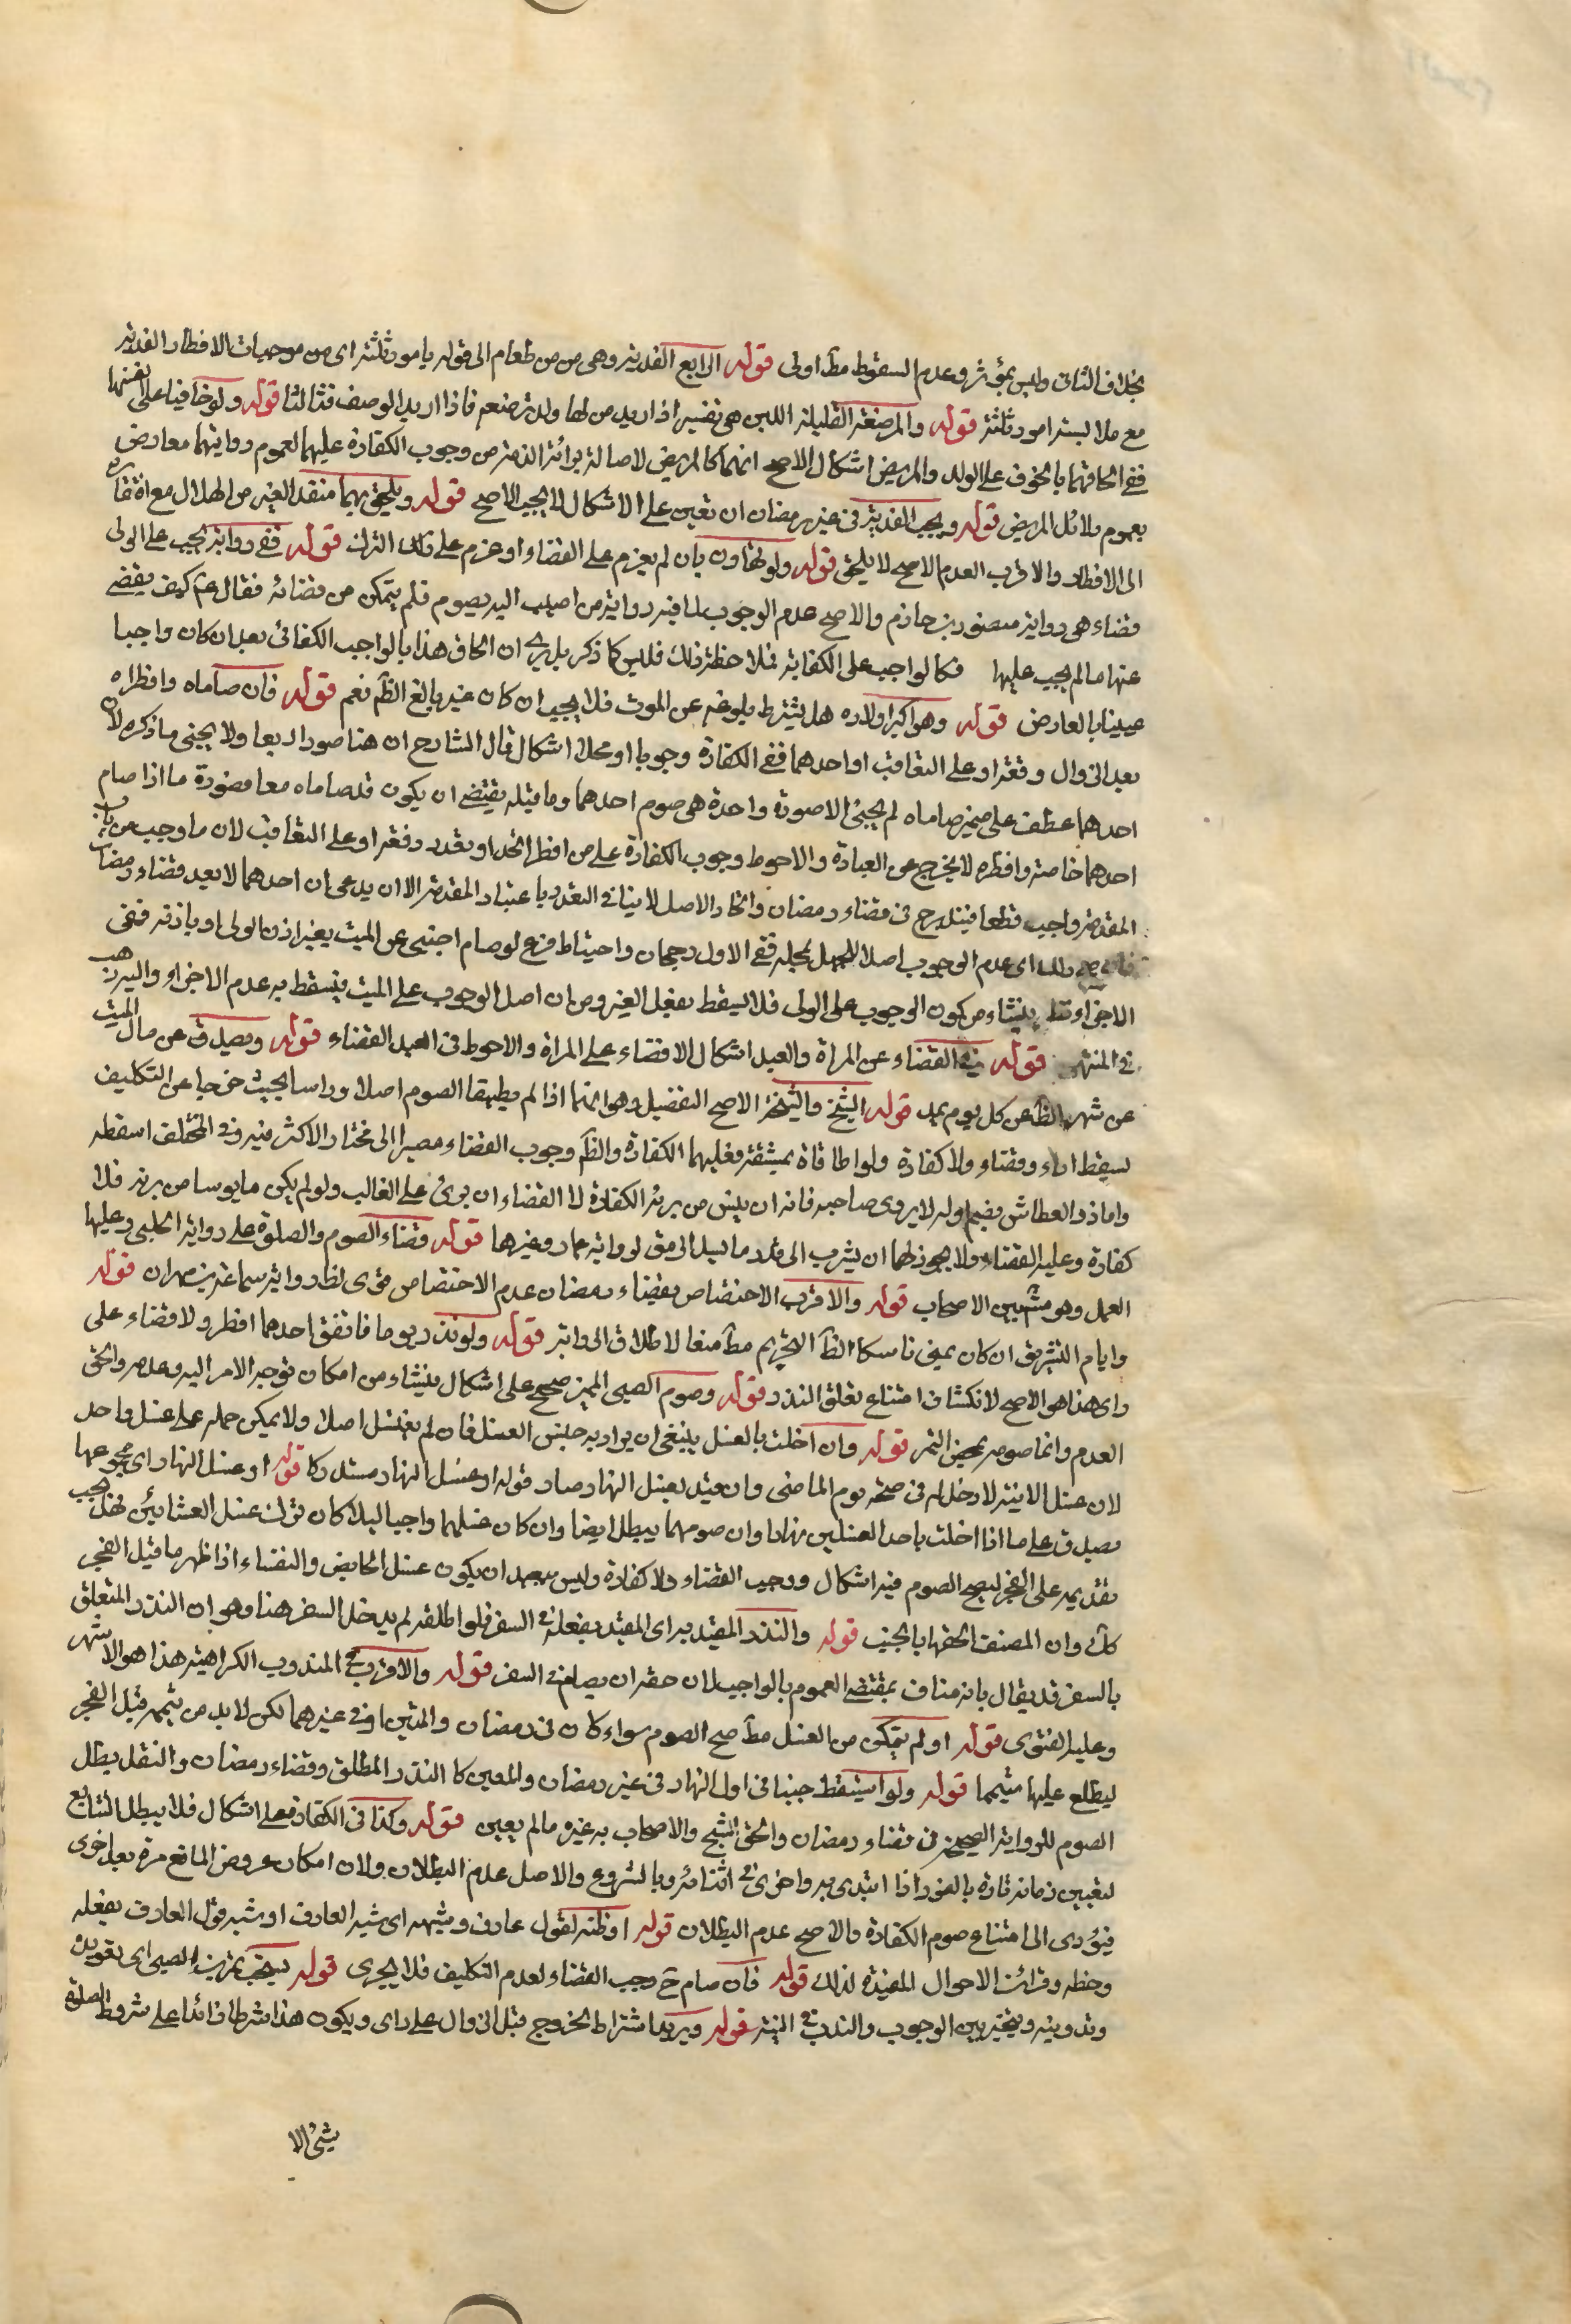 بخلاف الثانى وليس بمؤثر وعدم السقوط مطآ اولى قوله الرابع الفدية وهى من من طعام الى قوله بامور ثلثة اى من موجبات الافطار الفدية
مع ملابسته امور ثلثة قوله والمرضعة القليلة اللبن هى تفسير اذا اريد من لها ولد ترضعه فاذا اريد الوصف فتالثا قوله ولو خافتا على انفسهما
ففى الحاقهما بالخوف على الولد والمريض اشكال الاصح انهما كالمريض لاصالة برائة الذمة من وجوب الكفارة عليهما لعموم روايتهما معارض
بعموم دلائل المريض قوله ويجب الفدية فى غير رمضان ان تعين على الاشكال لا يجب الاصح قوله ويلحق بهما منقذ الغير من الهلاك مع افتقاره
الى الافطار والاقرب العدم الاصح لا يلحق قوله ولو تهاون بان لم يعزم على القضاء او عزم على ذلك الترك قوله ففى رواية يجب على الولى
قضاء هى رواية منصور بن حازم والاصح عدم الوجوب لما فيه رواية من اصيب اليه يصوم فلم يتمكن من قضائه فقال عم كيف يقضى
عنها ما لم يجب عليها فكالواجب على الكفاية فملاحظة ذلك فليس كما ذكر بل يرى ان الحاق هذا بالواجب الكفائى بعد ان كان واجبا
عينيا بالعارض قوله وهو اكبر اولاده هل يشترط بلوغه عن الموت فلا يجب ان كان غير بالغ الظم نعم قوله فان صاماه وافطراه
بعد الزوال دفعة او على التعاقب او احدهما ففى الكفارة وجوبا او محلا اشكال قال الشارح ان هنا صورا اربعا ولا يجئى ما ذكره لان
احدهما عطف على ضمير صاماه لم يجئ الا صورة واحدة هى صوم احدهما وما قبله يقتضى ان يكون قد صاماه معا فصورة ما اذا صام
احدهما خاصة وافطره لا يخرج عن العبارة والاحوط وجوب الكفارة على من افطر اتحد او تعدد دفعة او على التعاقب لان ما وجب من باب
المقدمة واجب قطعا فيندرج فى قضاء رمضان واتحاد الاصل لا ينافى التعدد باعتبار المقدمة الا ان يدعى ان احدهما لا بعيد قضاء رمضان
اى عدم الوجوب اصلا لمجلة ففى الاول رجحان واحتياط فرع لو صام اجنبى عن الميت بغير اذن الولى او باذنه ففى
الاجزاء ينشاء من كون الوجوب على الولى فلا يسقط بفعل الغير ومن ان اصل الوجوب على الميت فيسقط به عدم الاجزاء واليه ذهب
فى المنتهى قوله فى القضاء عن المراة والعبد اشكال الاقضاء على المراة والاحوط فى العبد القضاء قوله ويصدق عن مال الميت
عن شهر الظآ عن كل يوم بمد قوله الشيخ والشيخة الاصح التفصيل وهو انهما اذا لم يطيقا الصوم اصلا وراسا بحيث خرجا عن التكليف
يسقط اداء وقضاء ولا كفارة ولو اطاقاه بمشقة فعليهما الكفارة والظآ وجوب القضاء مصيرا الى مختار الاكثر منه وفى المختلف اسقطه
واما ذو العطاش فضم اوله لا يروى صاحبه فانه ان يئس من برئه الكفارة لا القضاء ان برئ على الغالب ولو لم يكن مايوسا من برئه فلا
كفارة وعليه القضاء ولا يجوز لهما ان يشرب الى قدر ما يسد الرمق لرواية عمار وغيرها قوله قضاء الصوم والصلوة على رواية الحلبى وعليها
العمل وهو مشهور بين الاصحاب قوله والاقرب الاختصاص بقضاء رمضان عدم الاختصاص قوى لظاهر رواية سماعة بن مهران قوله
وايام التشريق ان كان بمنى ناسكا الظآ التحريم مطآ منعا لاطلاق الرواية قوله ولو نذر يوما فاتفق احدهما افطر ولا قضاء على
راى هذا هو الاصح لانكشاف امتناع تعلق النذر قوله وصوم الصبى المميز صحيح على اشكال ينشاء من امكان توجه الامر اليه وعدمه والحق
العدم وانما صومه محض التمر قوله وان اخلت بالغسل ينبغى ان يراد به جنس الغسل فان لم يغتسل اصلا ولا يمكن حمله على غسل واحد
لان غسل الاتية لا دخل له فى صحة يوم الماضى وان قيد بغسل النهار صار قوله او غسل النهار مستدركا قوله او غسل النهار اى مجموعها
يصدق على ما اذا اخلت باحد الغسلين نهارا وان صومهما يبطل ايضا وان كان غسلهما واجبا ليلا كان ترك غسل العشائين فهل يجب
تقديمه على الفجر ليصح الصوم فيه اشكال ووجب القضاء ولا كفارة وليس ببعيد ان يكون غسل الحايض والنفساء اذا ظهر ما قبل الفجر
كآ وان المصنف الحقها بالجنب قوله والنذر المقيد به اى المقيد بفعله فى السفر فلو اطلقه لم يدخل السفر هنا وهو ان النذر المتعلق
بالسفر قد يقال بانه مناف بمقتضى العموم بالواجب لان حقه ان يصام فى السفر قوله والاقرب فى المندوب الكراهية هذا هو الاشهر
وعليه الفتوى قوله او لم يتمكن من الغسل مطآ صح الصوم سواء كان فى رمضان والمتين او فى غيرهما لكن لا بد من تيممه قبل الفجر
ليطلع عليها متيمما قوله ولو استيقظ جنبا فى اول النهار فى غير رمضان والمعين كالنذر المطلق وقضاء رمضان والنفل بطل
الصوم للرواية الصحيحة فى قضاء رمضان والحق الشيخ والاصحاب به غيره ما لم يعين قوله وكذا فى الكفارة على اشكال فلا يبطل التتابع
لتعيين زمانه تارة بالفور اذا ابتدى به واخرى فى اثنائه وبالشروع والاصل عدم البطلان ولان امكان عروض المانع مرة بعد اخرى
فيؤدى الى امتناع صوم الكفارة والاصح عدم البطلان قوله او ظنه لقول عارف وشبهه اى شبه العارف او شبه قول العارف بفعله
وحظه وقرائن الاحوال المفيدة لذلك قوله فان صام ح وجب القضاء لعدم التكليف فلا يجزى قوله يستحب تمرين الصبى اى تعويده
وتدوينه ويتخير بين الوجوب والندب فى النية قوله ويريد اشتراط الخروج قبل الزوال على راى ويكون هذا شرطا زائدا على شروط الصلوة
شئ الا